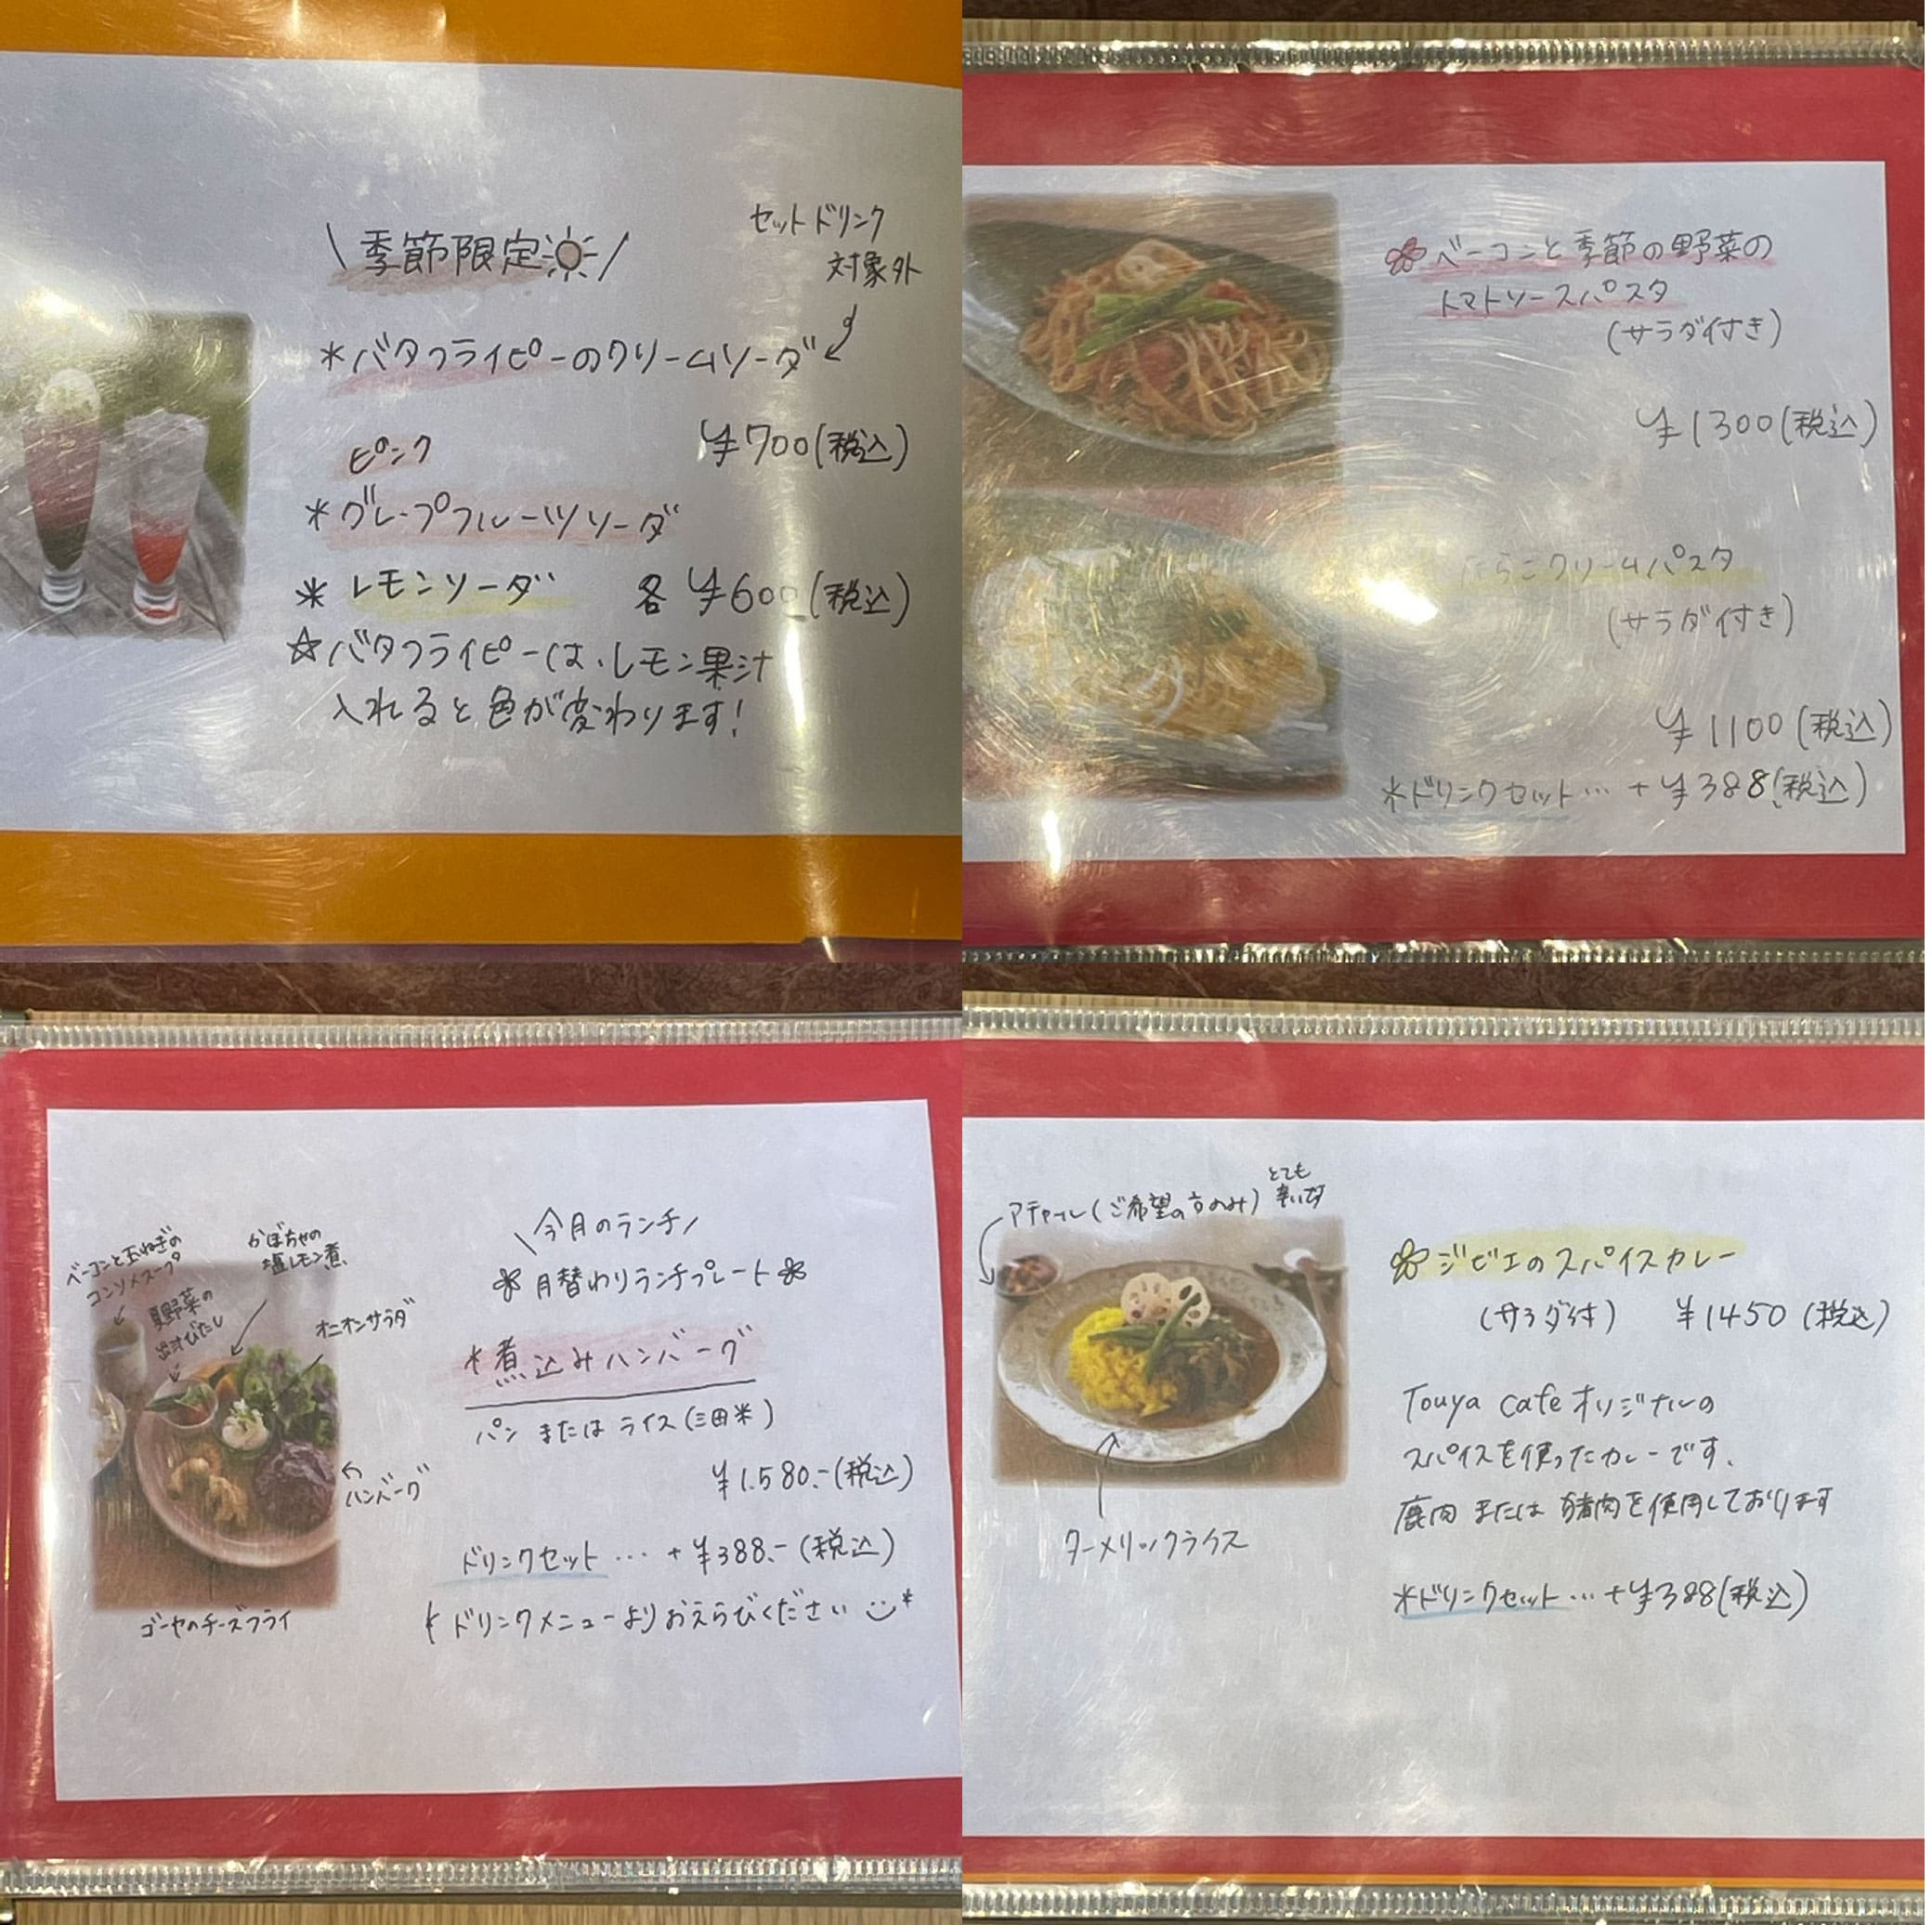 \季節限定/
セットドリンク
対象外
*バタフライピーのクリームソーダ
¥700(税込)
ピンク
*グレープフルーツソーダ
*レモンソーダ 各¥600(税込)
☆バタフライピーは、レモン果汁
入れると色が変わります!
ベーコンと季節の野菜の
トマトソースパスタ
(サラダ付き)
¥1300(税込)
たらこクリームパスタ
(サラダ付き)
¥1100(税込)
*ドリンクセット…+¥388(税込)
\今月のランチ/
月替わりランチプレート
*煮込みハンバーグ
パン または ライス(三田米)
¥1.580.-(税込)
ドリンクセット…+¥388.-(税込)
ドリンクメニューよりおえらびください
ベーコンと玉ねぎの
コンソメスープ
かぼちゃの
塩レモン煮
夏野菜の
出汁びたし
オニオンサラダ
ハンバーグ
ゴーヤのチーズフライ
アチャール(ご希望の方のみ)
とても
辛いです
ターメリックライス
ジビエのスパイスカレー
(サラダ付) ¥1450(税込)
Touya cafeオリジナルの
スパイスを使ったカレーです。
鹿肉 または 猪肉を使用しております
*ドリンクセット…+¥388(税込)